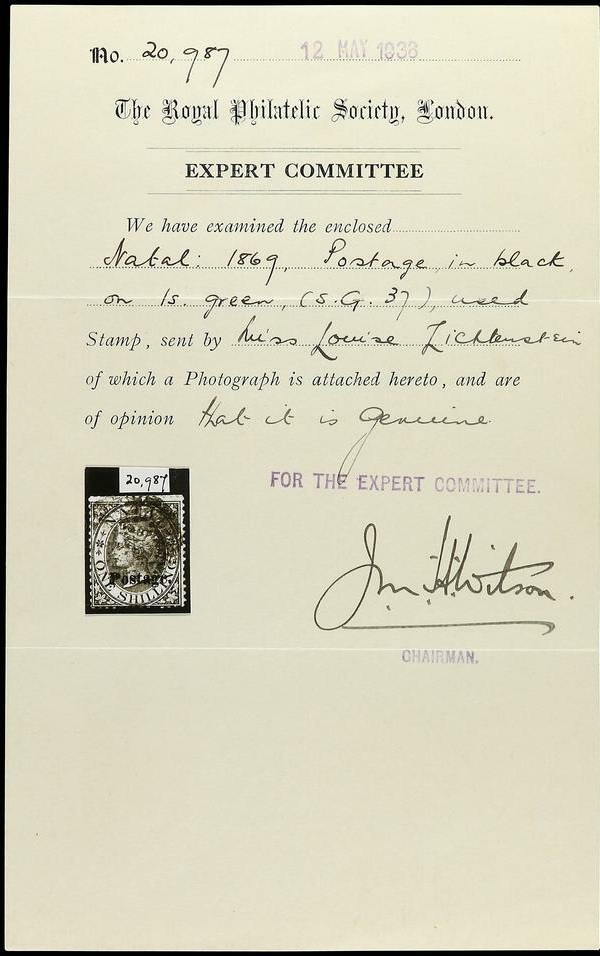 No. 20,987 12 MAY 1938
The Royal Philatelic Society, London.
EXPERT COMMITTEE
We have examined the enclosed
Natal: 1869, Postage in black,
on 1s. green, (S.G. 37), used
Stamp, sent by Miss Louise Lichtenstein
of which a Photograph is attached hereto, and are
of opinion that it is genuine.
20,987
FOR THE EXPERT COMMITTEE.
NATAL
Postage.
ONE SHILLING
Jn. H. Wilson.
CHAIRMAN.